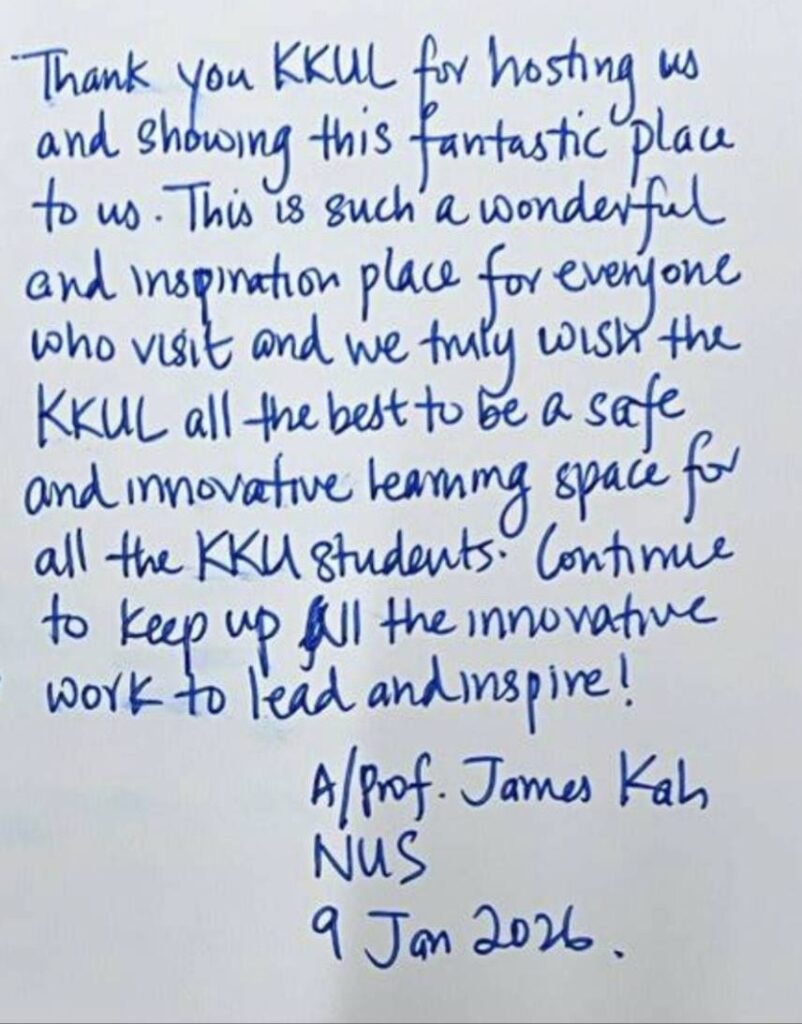 Thank you KKUL for hosting us
and showing this fantastic place
to us. This is such a wonderful
and inspiration place for everyone
who visit and we truly wish the
KKUL all the best to be a safe
and innovative learning space for
all the KKU students. Continue
to keep up all the innovative
work to lead and inspire!
A/Prof. James Kah
NUS
9 Jan 2026.